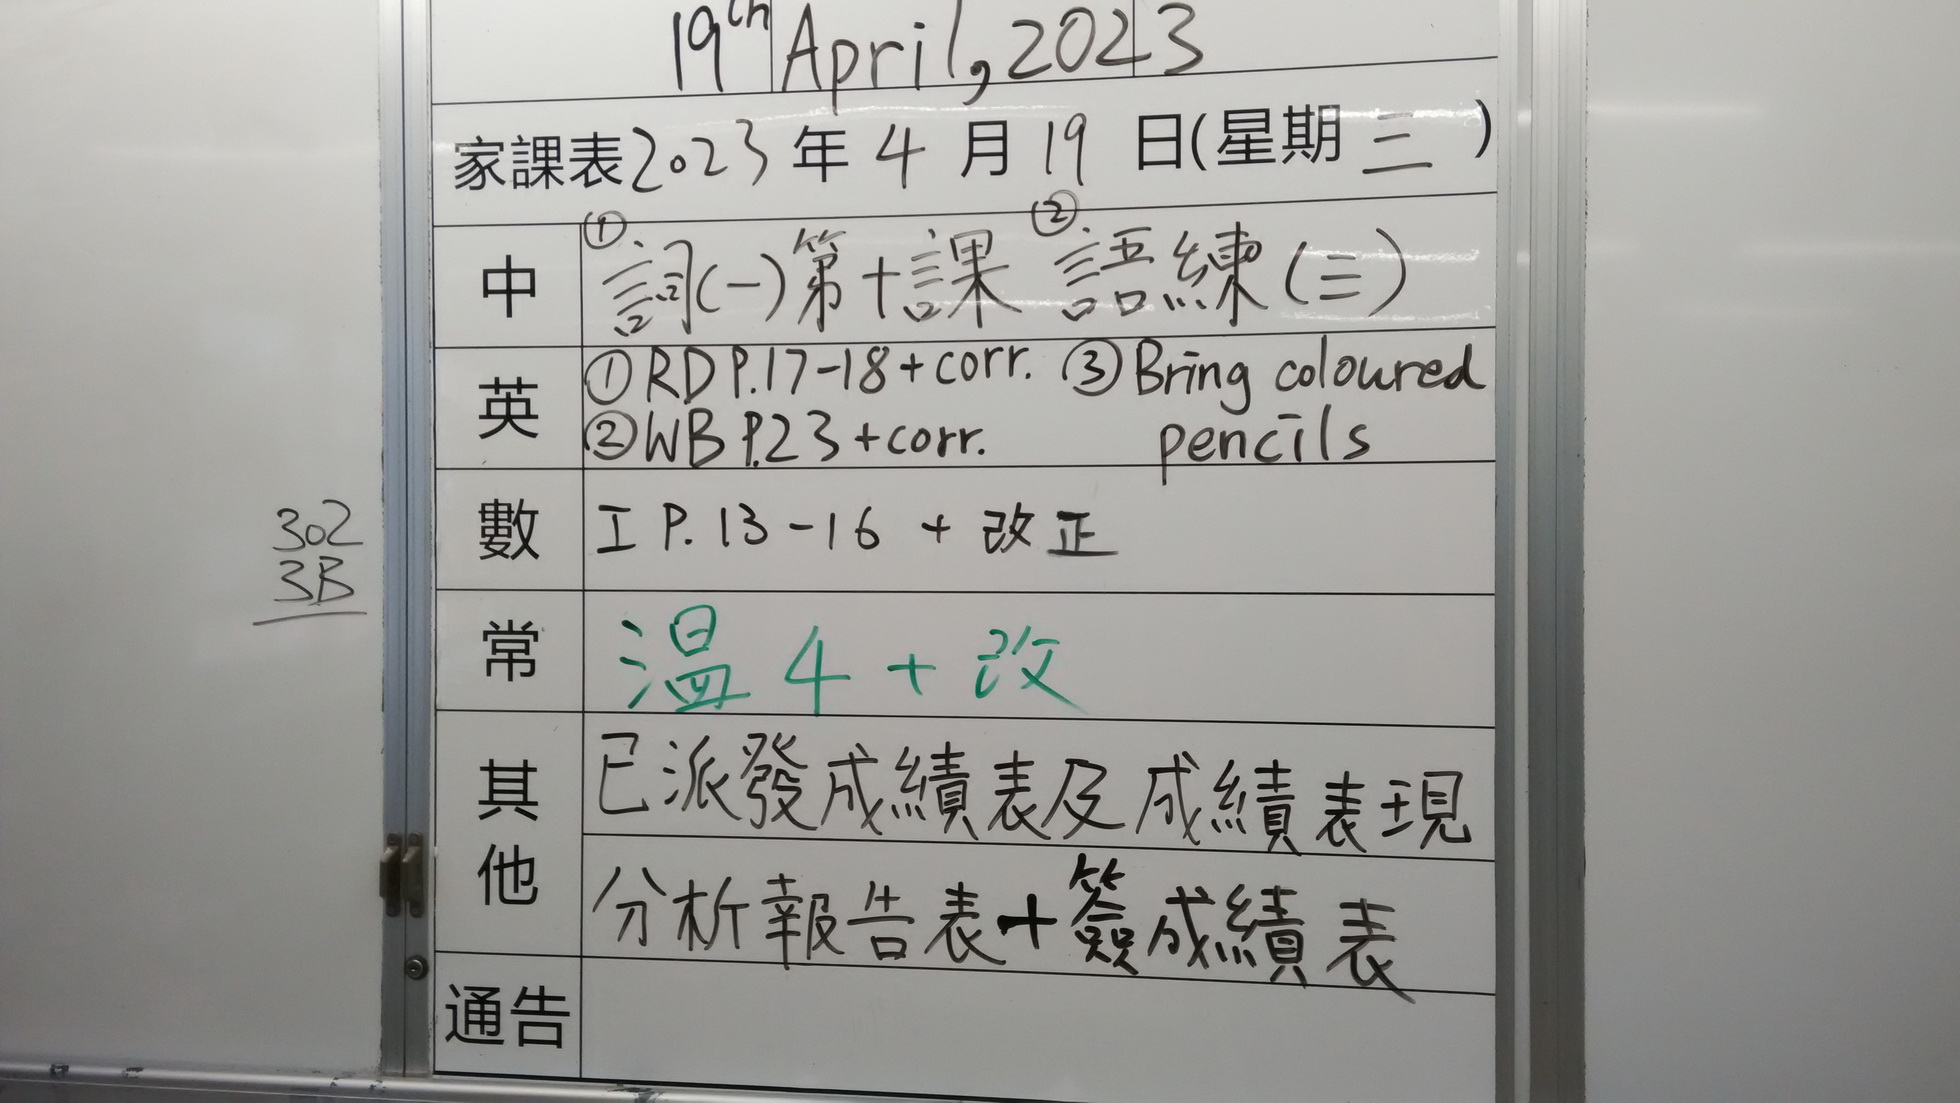 19th April, 2023
家課表 2023 年 4 月 19 日(星期 三 )
中 ①詞(一)第十課 ②語練(三)
英 ①RD P.17-18+corr. ③Bring coloured
②WB P.23+corr. pencils
數 I P.13-16 + 改正
302
3B
常 溫 4 + 改
其他 已派發成績表及成績表現
分析報告表+簽成績表
通告